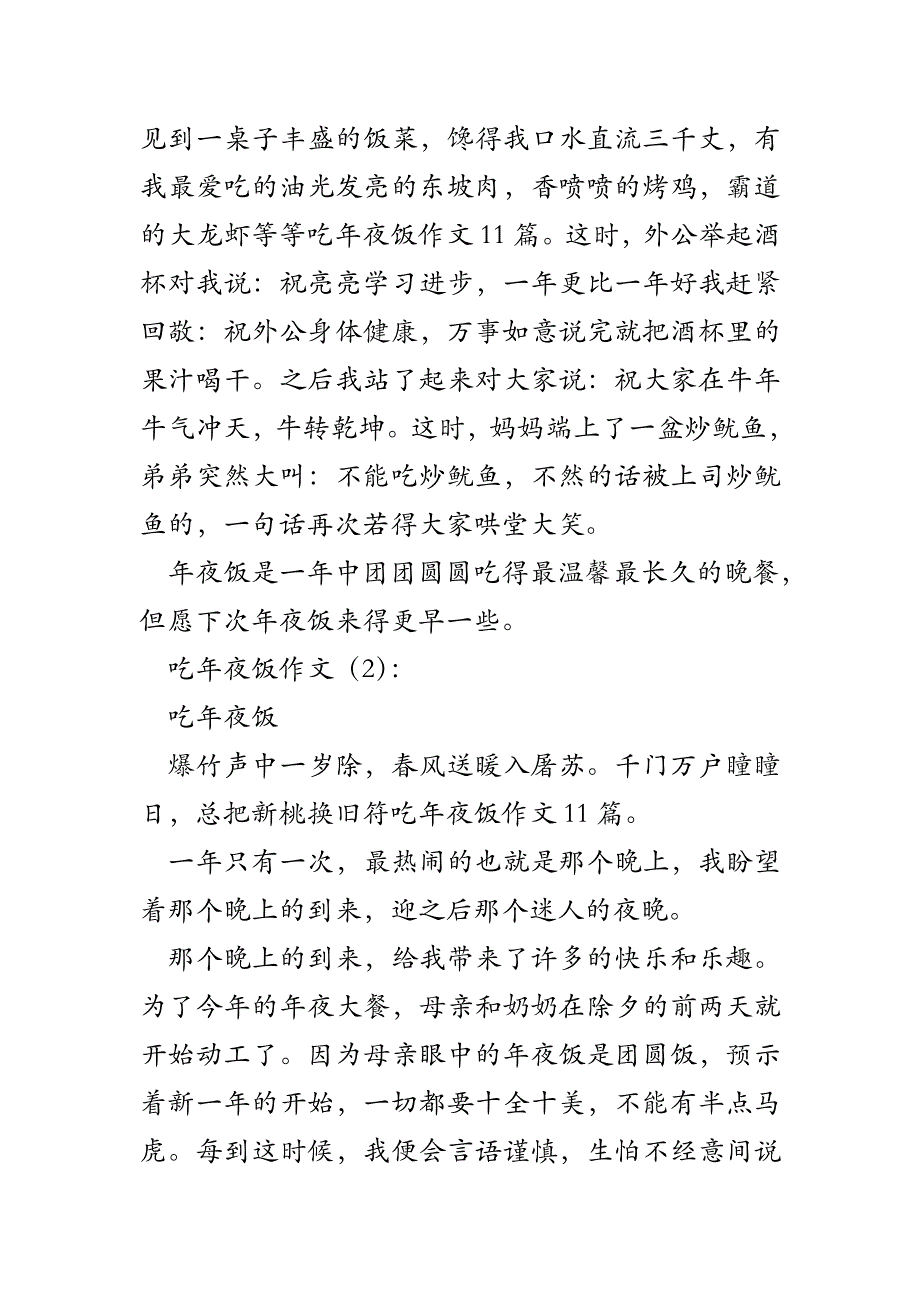 见到一桌子丰盛的饭菜，馋得我口水直流三千丈，有
我最爱吃的油光发亮的东坡肉，香喷喷的烤鸡，霸道
的大龙虾等等吃年夜饭作文 11 篇。这时，外公举起酒
杯对我说：祝亮亮学习进步，一年更比一年好我赶紧
回敬：祝外公身体健康，万事如意说完就把酒杯里的
果汁喝干。之后我站了起来对大家说：祝大家在牛年
牛气冲天，牛转乾坤。这时，妈妈端上了一盆炒鱿鱼，
弟弟突然大叫：不能吃炒鱿鱼，不然的话被上司炒鱿
鱼的，一句话再次若得大家哄堂大笑。
年夜饭是一年中团团圆圆吃得最温馨最长久的晚餐，
但愿下次年夜饭来得更早一些。
吃年夜饭作文（2）：
吃年夜饭
爆竹声中一岁除，春风送暖入屠苏。千门万户瞳瞳
日，总把新桃换旧符吃年夜饭作文 11 篇。
一年只有一次，最热闹的也就是那个晚上，我盼望
着那个晚上的到来，迎之后那个迷人的夜晚。
那个晚上的到来，给我带来了许多的快乐和乐趣。
为了今年的年夜大餐，母亲和奶奶在除夕的前两天就
开始动工了。因为母亲眼中的年夜饭是团圆饭，预示
着新一年的开始，一切都要十全十美，不能有半点马
虎。每到这时候，我便会言语谨慎，生怕不经意间说